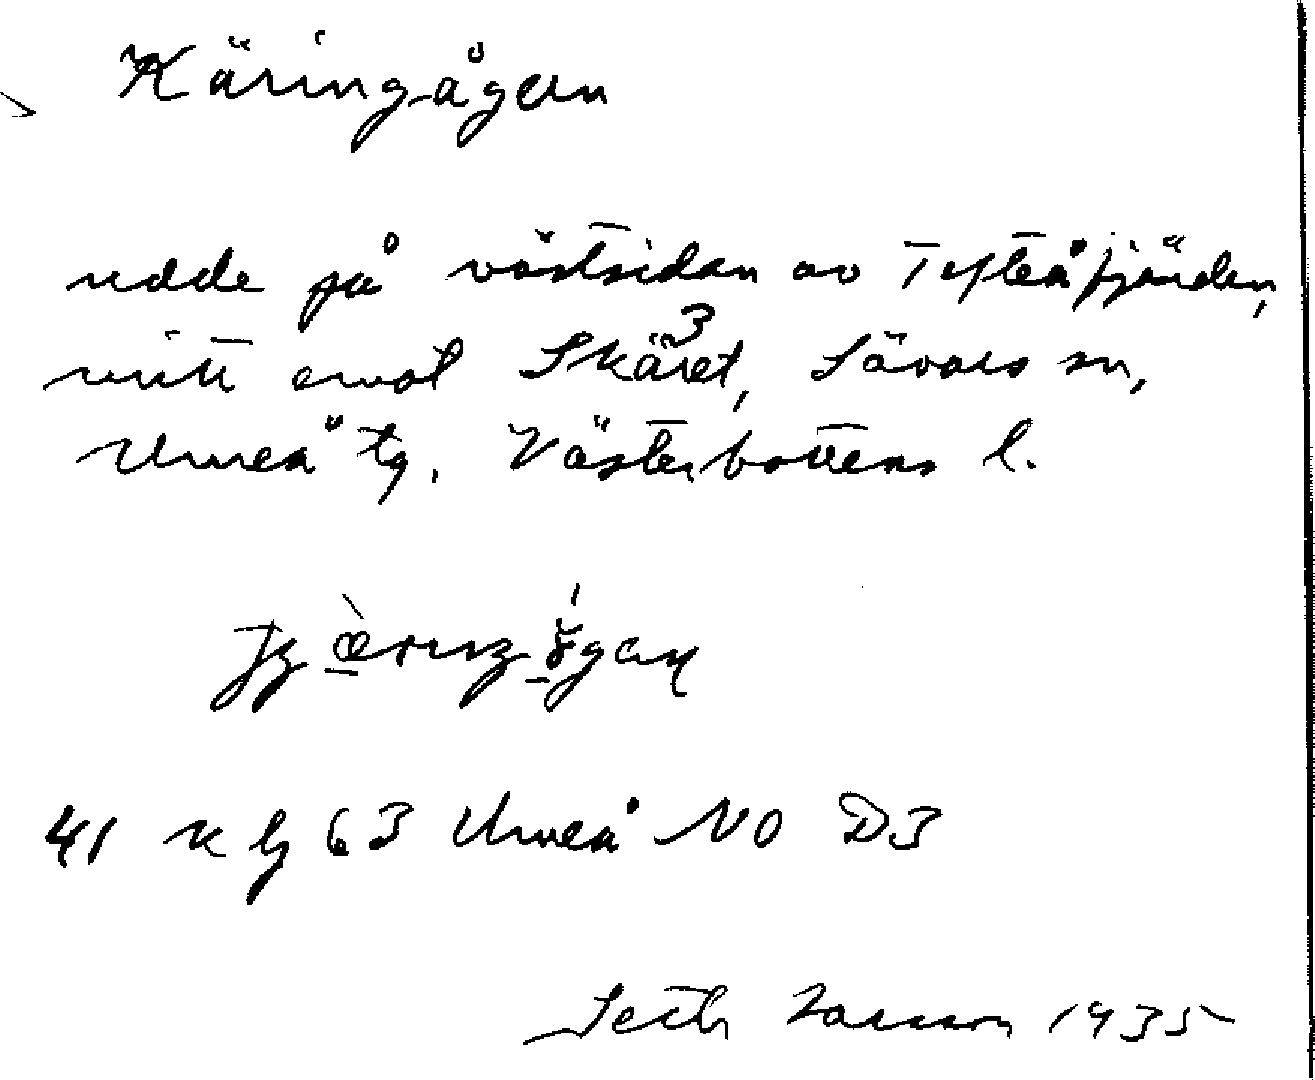 Käringågern
udde på västsidan av Tefteåfjärden,
mitt emot Skäret, Sävars sn,
Umeå tg, Västerbottens l.
41 K bj 63 Umeå NO D3
Seth Jansson 1935